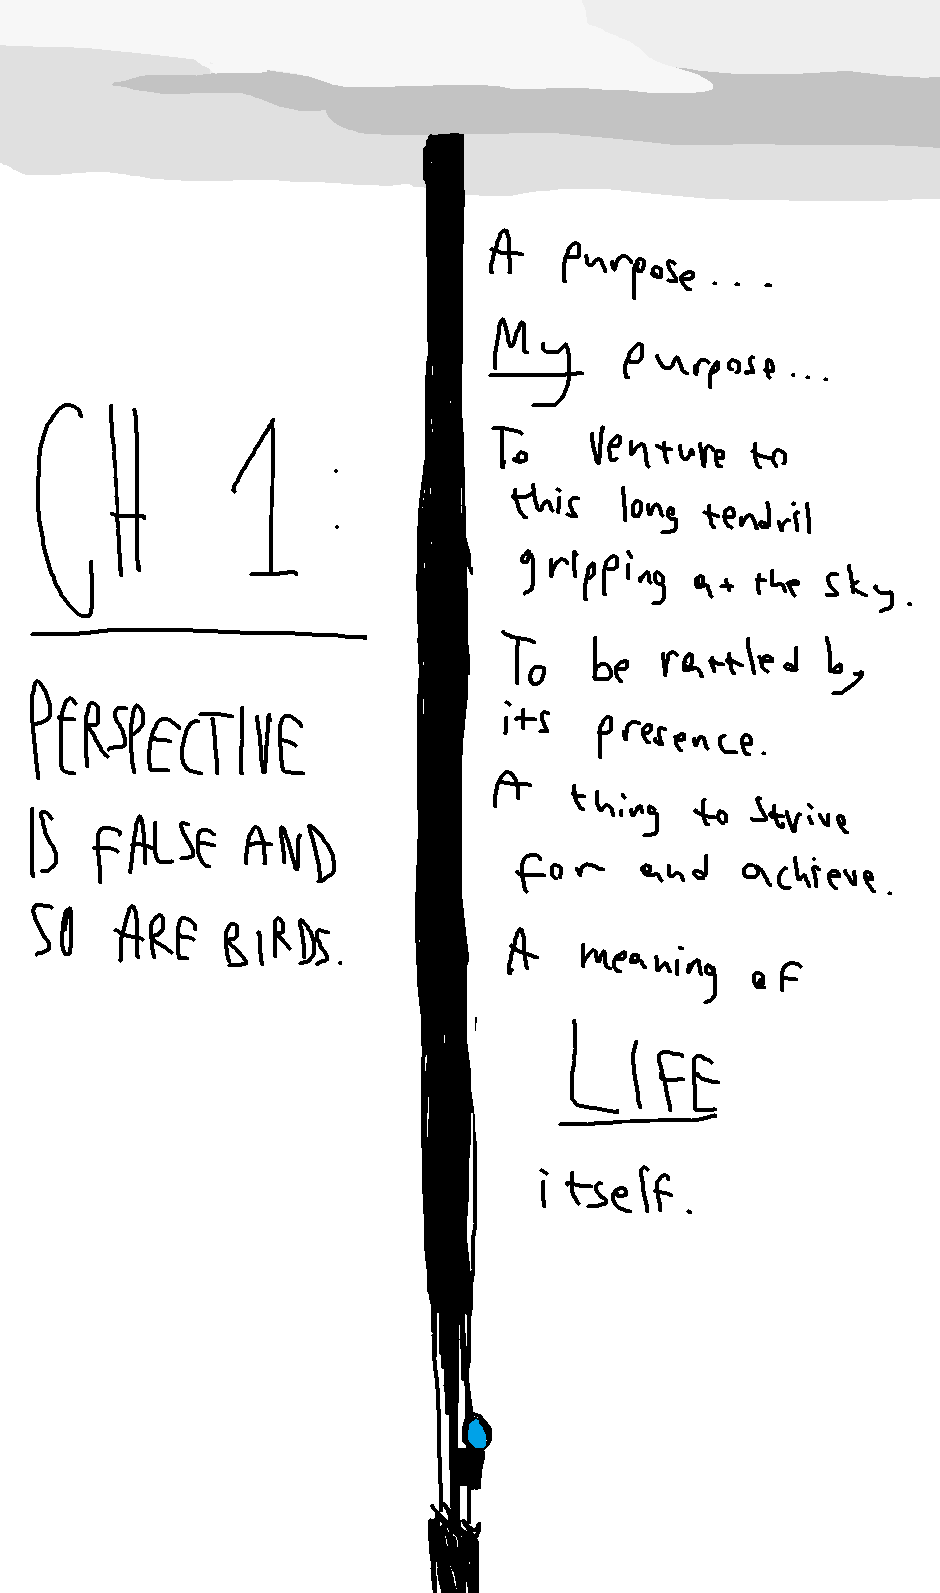 CH 1:
PERSPECTIVE
IS FALSE AND
SO ARE BIRDS.
A purpose...
My purpose...
To venture to
this long tendril
gripping at the sky.
To be rattled by
its presence.
A thing to strive
for and achieve.
A meaning of
LIFE
itself.